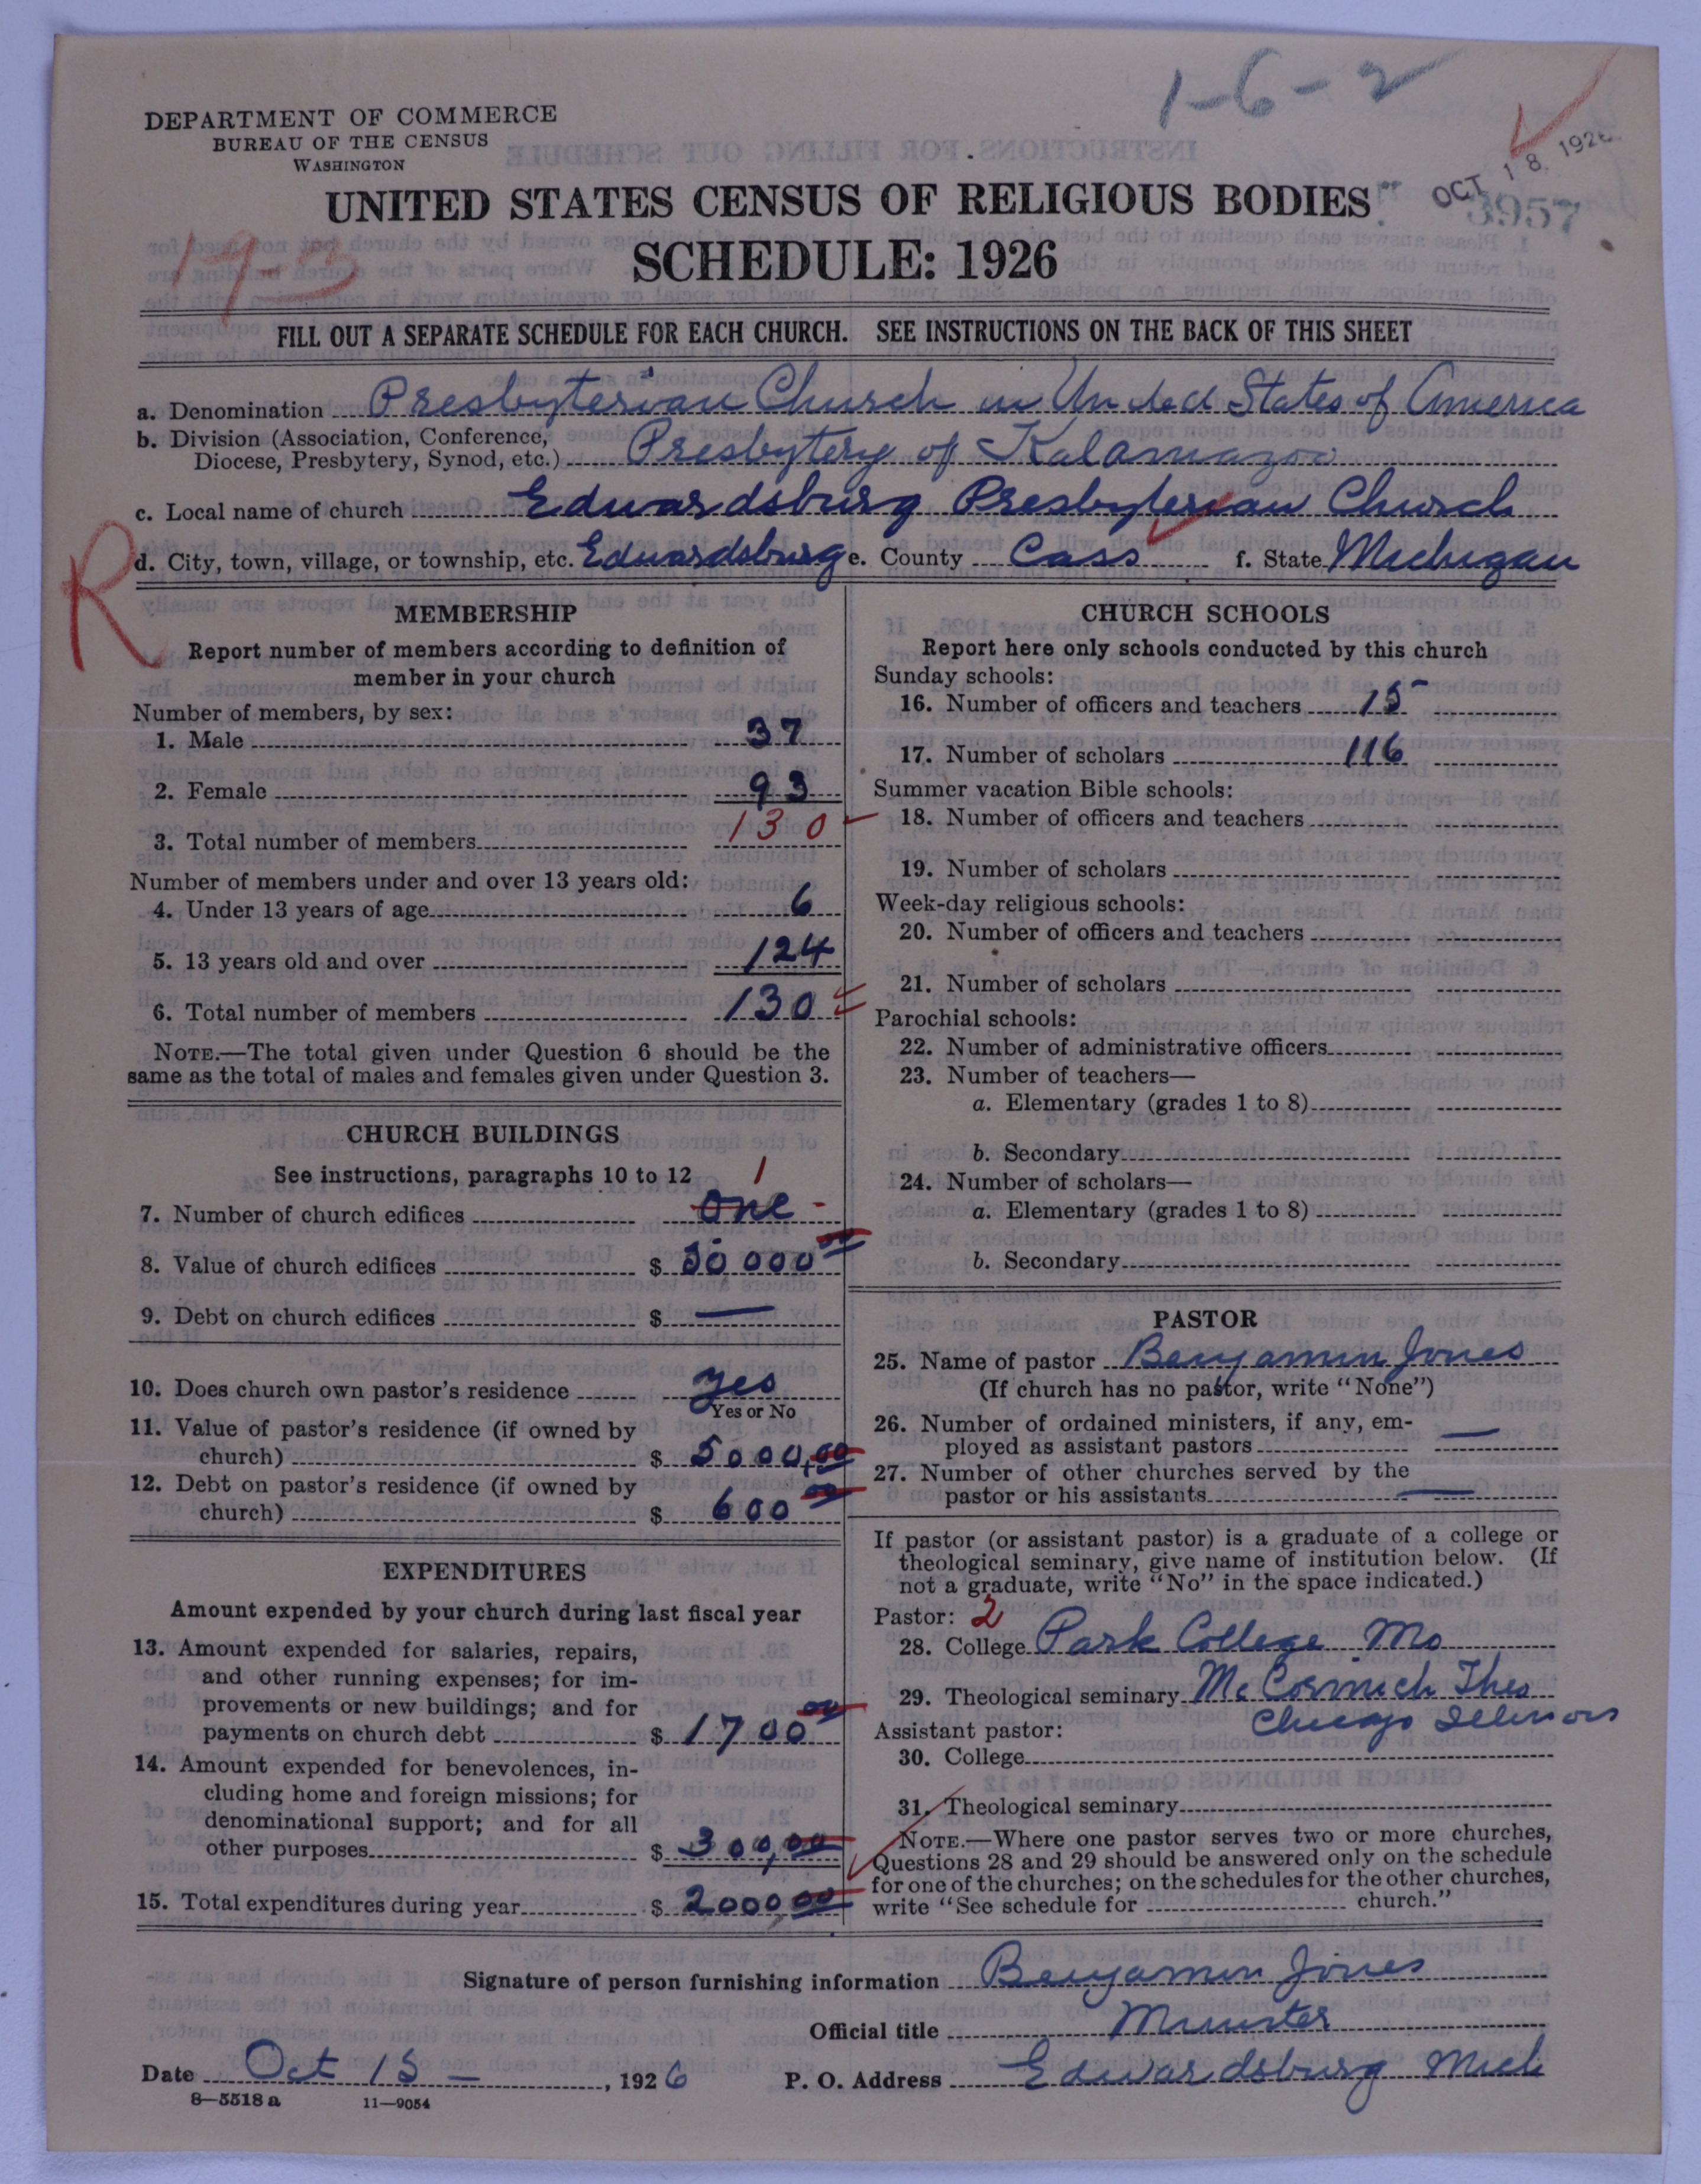 1-6-2
DEPARTMENT OF COMMERCE
BUREAU OF THE CENSUS
WASHINGTON
OCT 18 1926
3957
UNITED STATES CENSUS OF RELIGIOUS BODIES
19-3
SCHEDULE: 1926
FILL OUT A SEPARATE SCHEDULE FOR EACH CHURCH. SEE INSTRUCTIONS ON THE BACK OF THIS SHEET
a. Denomination Presbyterian Church in United States of America
b. Division (Association, Conference,
Diocese, Presbytery, Synod, etc.) Presbytery of Kalamazoo
c. Local name of church Edwardsburg Presbyterian Church
R
d. City, town, village, or township, etc. Edwardsburg e. County Cass f. State Michigan
MEMBERSHIP
Report number of members according to definition of
member in your church
Number of members, by sex:
1. Male 37
2. Female 93
3. Total number of members 130
Number of members under and over 13 years old:
4. Under 13 years of age 6
5. 13 years old and over 124
6. Total number of members 130
NOTE.—The total given under Question 6 should be the
same as the total of males and females given under Question 3.
CHURCH BUILDINGS
See instructions, paragraphs 10 to 12
1
7. Number of church edifices one
8. Value of church edifices $ 50 000 00
9. Debt on church edifices $ —
10. Does church own pastor's residence yes
Yes or No
11. Value of pastor's residence (if owned by
church) $ 5000,00
12. Debt on pastor's residence (if owned by
church) $ 600 00
EXPENDITURES
Amount expended by your church during last fiscal year
13. Amount expended for salaries, repairs,
and other running expenses; for im-
provements or new buildings; and for
payments on church debt $ 1700 00
14. Amount expended for benevolences, in-
cluding home and foreign missions; for
denominational support; and for all
other purposes $ 300,00
15. Total expenditures during year $ 2000,00
CHURCH SCHOOLS
Report here only schools conducted by this church
Sunday schools:
16. Number of officers and teachers 15
17. Number of scholars 116
Summer vacation Bible schools:
18. Number of officers and teachers
19. Number of scholars
Week-day religious schools:
20. Number of officers and teachers
21. Number of scholars
Parochial schools:
22. Number of administrative officers
23. Number of teachers—
a. Elementary (grades 1 to 8)
b. Secondary
24. Number of scholars—
a. Elementary (grades 1 to 8)
b. Secondary
PASTOR
25. Name of pastor Benjamin Jones
(If church has no pastor, write "None")
26. Number of ordained ministers, if any, em-
ployed as assistant pastors —
27. Number of other churches served by the
pastor or his assistants —
If pastor (or assistant pastor) is a graduate of a college or
theological seminary, give name of institution below. (If
not a graduate, write "No" in the space indicated.)
Pastor: 2
28. College Park College Mo
29. Theological seminary McCormich Theo
Chicago Illinois
Assistant pastor:
30. College
31. Theological seminary
NOTE.—Where one pastor serves two or more churches,
Questions 28 and 29 should be answered only on the schedule
for one of the churches; on the schedules for the other churches,
write "See schedule for church."
Signature of person furnishing information Benjamin Jones
Official title Minister
Date Oct 15 — , 1926 P. O. Address Edwardsburg Mich
8—5518 a 11—9054